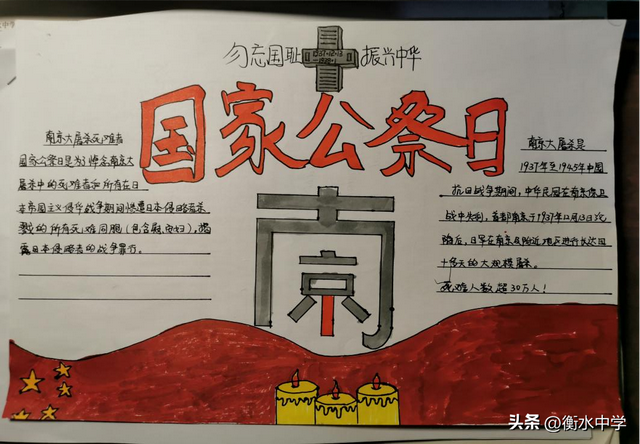 勿忘国耻 振兴中华
1937.12.13
国家公祭日
南京大屠杀死难者
国家公祭日是为了悼念南京大
屠杀中的死难者和所有在日
本帝国主义侵华战争期间惨遭日本侵略者杀
戮的所有死难同胞（包含慰安妇），揭
露日本侵略者的战争罪行。
南京
南京大屠杀是
1937年至1945年中国
抗日战争期间，中华民国在南京保卫
战中失利，首都南京于1937年12月13日沦
陷后，日军在南京及附近地区进行长达四
十多天的大规模屠杀。
死难人数超30万人！
头条 @衡水中学